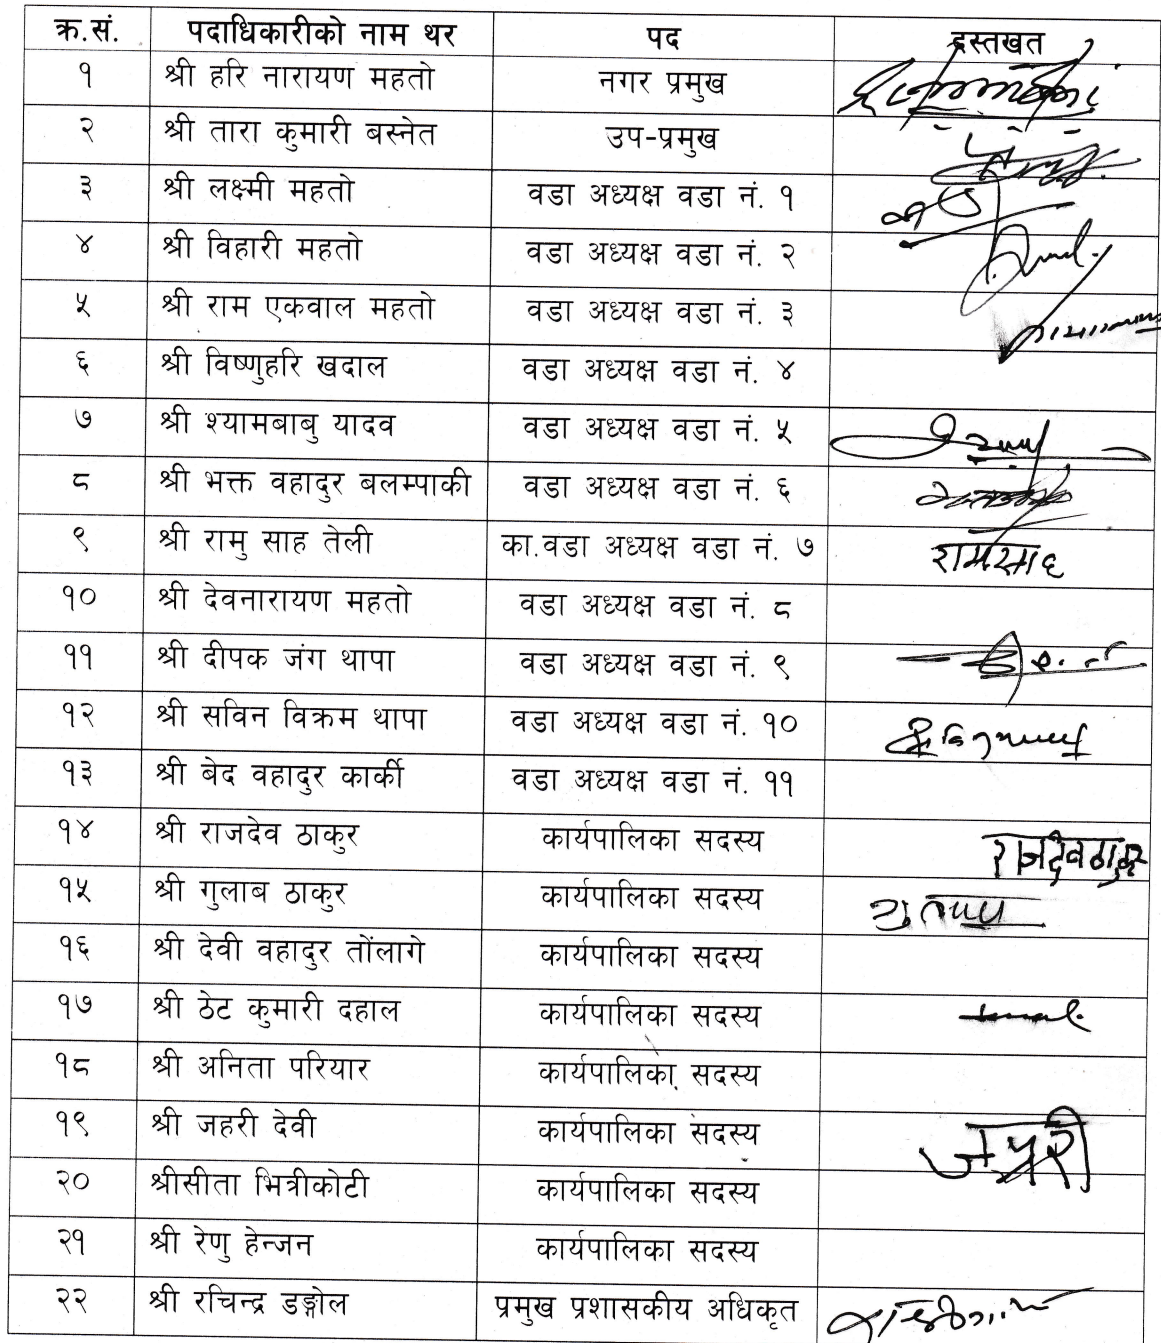 क्र.सं. पदाधिकारीको नाम थर पद दस्तखत
१ श्री हरि नारायण महतो नगर प्रमुख
२ श्री तारा कुमारी बस्नेत उप-प्रमुख
३ श्री लक्ष्मी महतो वडा अध्यक्ष वडा नं. १
४ श्री विहारी महतो वडा अध्यक्ष वडा नं. २
५ श्री राम एकवाल महतो वडा अध्यक्ष वडा नं. ३
६ श्री विष्णुहरि खदाल वडा अध्यक्ष वडा नं. ४
७ श्री श्यामबाबु यादव वडा अध्यक्ष वडा नं. ५
८ श्री भक्त वहादुर बलम्पाकी वडा अध्यक्ष वडा नं. ६
९ श्री रामु साह तेली का.वडा अध्यक्ष वडा नं. ७ रामुसाह
१० श्री देवनारायण महतो वडा अध्यक्ष वडा नं. ८
११ श्री दीपक जंग थापा वडा अध्यक्ष वडा नं. ९
१२ श्री सविन विक्रम थापा वडा अध्यक्ष वडा नं. १०
१३ श्री बेद वहादुर कार्की वडा अध्यक्ष वडा नं. ११
१४ श्री राजदेव ठाकुर कार्यपालिका सदस्य राजदेव ठाकुर
१५ श्री गुलाब ठाकुर कार्यपालिका सदस्य
१६ श्री देवी वहादुर तोंलागे कार्यपालिका सदस्य
१७ श्री ठेट कुमारी दहाल कार्यपालिका सदस्य
१८ श्री अनिता परियार कार्यपालिका सदस्य
१९ श्री जहरी देवी कार्यपालिका सदस्य
२० श्रीसीता भित्रीकोटी कार्यपालिका सदस्य
२१ श्री रेणु हेन्जन कार्यपालिका सदस्य
२२ श्री रचिन्द्र डङ्गोल प्रमुख प्रशासकीय अधिकृत